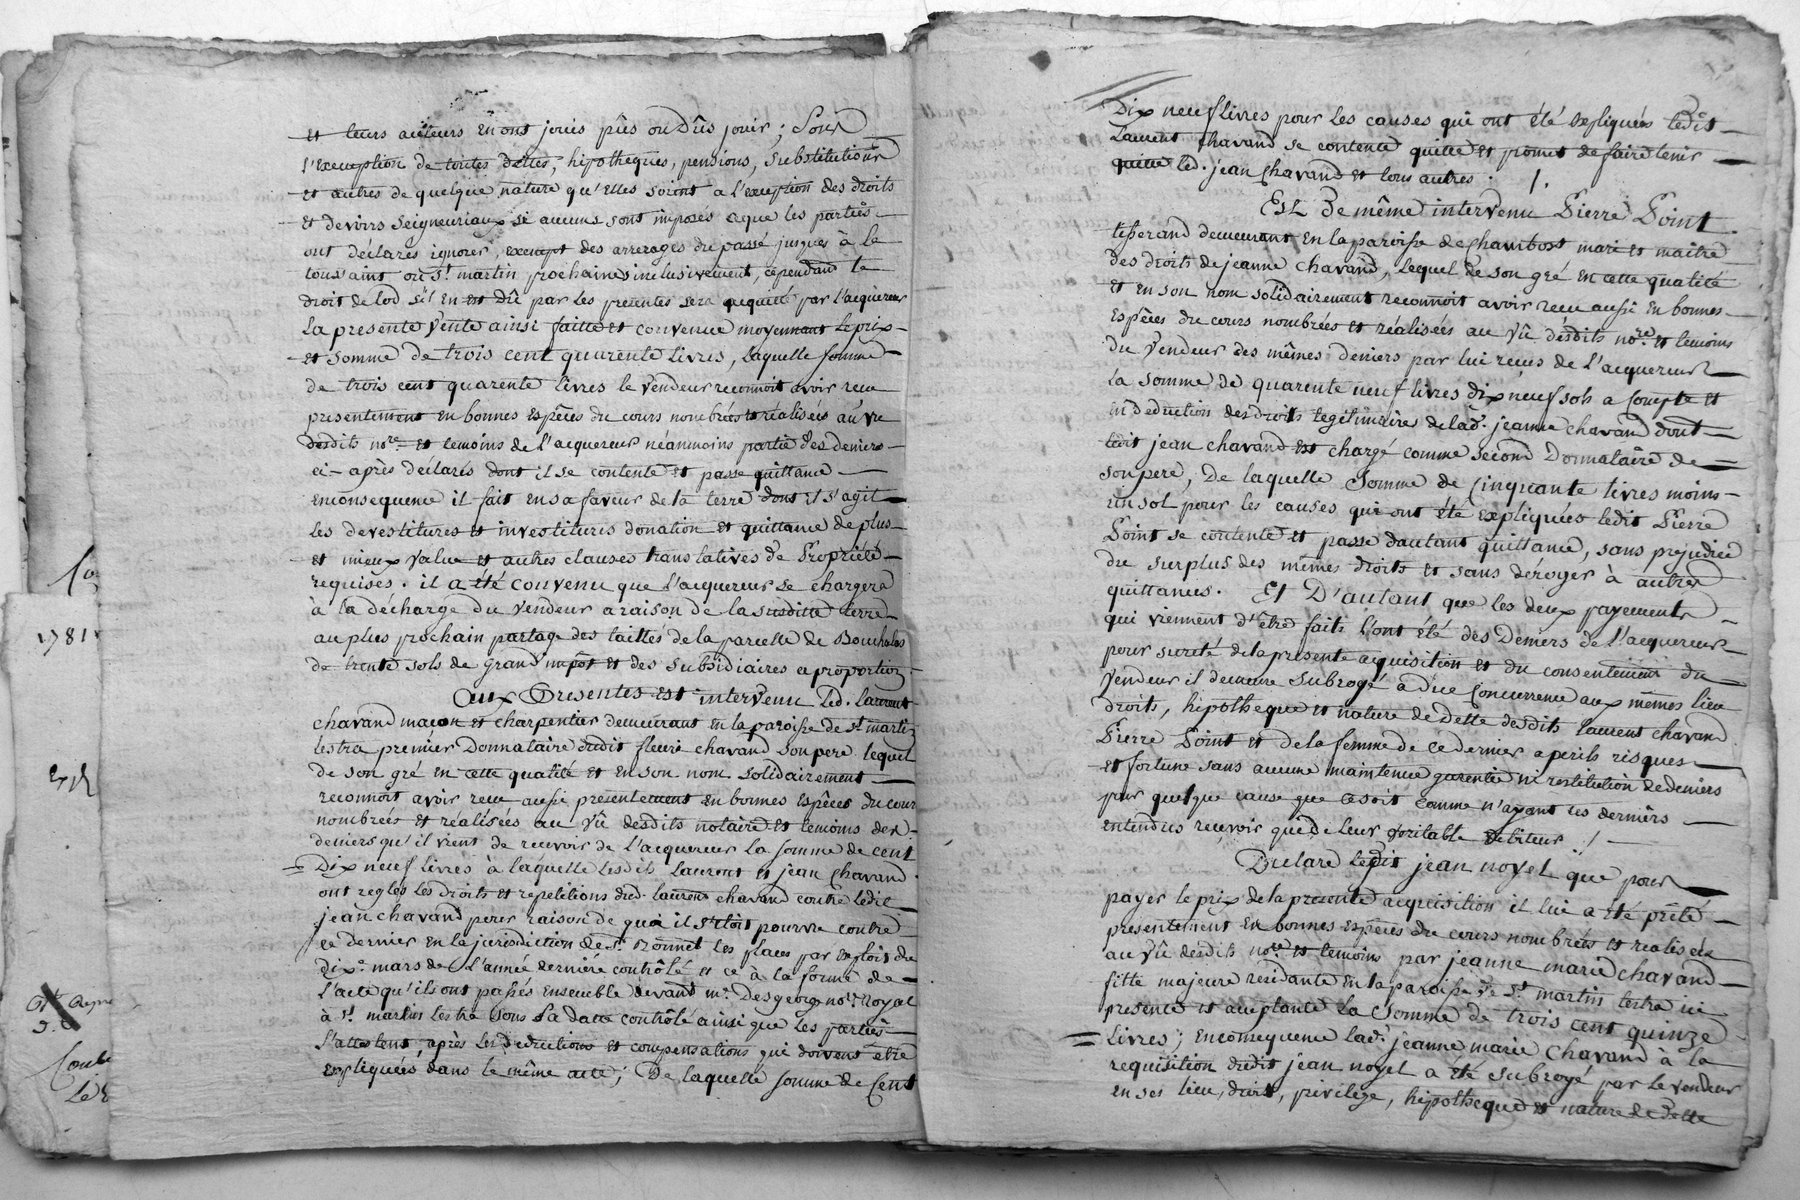 1781
et leurs auteurs en ont jouis pûs ou Dûs jouir ; Sous
l'exeception de toutes dettes, hipotheques, pensions, Substitutions
et autres de quelque nature qu'elles soient a l'exeption des droits
et devoirs seigneuriaux si aucuns sont imposés aque les parties
ont déclarés ignorer, exempt des arrerages du passé jusques à la
toussaint ou st. martin prochaines inclusivement, cependant le
droit de lod s'il en est dû par les presentes sera acquitté par l'acquereur
La presente vente ainsi faitte et convenue moyennant le prix
et somme de trois cent quarente Livres, Laquelle somme
de trois cent quarente livres le vendeur reconnoit avoir recu
presentement en bonnes espêces du cours nombrées et réalisées au vu
desdits nore. et temoins de l'acquereur néanmoins partie des deniers
ci-après déclarés dont il se contente et passe quittance
enconsequence il fait en sa faveur de la terre dont il s'agit
les devestitures et investitures donation et quittance de plus
et mieux value et autres clauses translatives de Propriété
requises. il a été convenu que l'acquereur se chargera
à la décharge du vendeur a raison de la susditte terre
au plus prochain partage des tailles de la parcelle de Bouchalas
de trente sols de grand impôt et des subsidiaires a proportion
Aux Presentes est intervenu Led. Laurent
chavand maçon et charpentier demeurant en la paroisse de st martin
lestra premier Donnataire dudit fleuri chavand son pere lequel
de son gré en cette qualité et en son nom solidairement
reconnoit avoir recu aussi presentement en bonnes espêces du cour
nombrées et réalisées au vû desdits notaire et temoins des
deniers qu'il vient de recevoir de l'acquereur la somme de cent
Dix neuf livres à laquelle lesdits Laurent et jean chavand
ont reglés les droits et repetitions dud. laurent chavand contre ledit
jean chavand pour raison de quoi il s'etoit pourvu contre
ce dernier en la jurisdiction de st. Bonnet les places par exploit du
dixe. mars de l'année derniére contrôlé et ce à la forme de
l'acte qu'ils ont passés ensemble devant me. Desgeorge nore. Royal
à st. martin lestra sous sa datte contrôlé ainsi que les parties
l'attestent, après les deductions et compensations qui doivent être
expliquées dans le même acte ; De laquelle somme de Cent
Dix neuf livres pour les causes qui ont été expliquées ledit
Laurent chavand se contente quitte et promet de faire tenir
quitte led. jean chavand et tous autres.
Est De même intervenu Pierre Point
tisserand demeurant en la paroisse de chambost mari et maitre
des droits de jeanne chavand, lequel de son gré en cette qualité
et en son nom solidairement reconnoit avoir recu aussi en bonnes
espêces du cours nombrées et réalisées au vû desdits nore. et temoins
du vendeur des mêmes deniers par lui recus de l'acquereur
la somme de quarente neuf livres dix neuf sols a compte et
en deduction des droits legitimaires de lad. jeanne chavand dont
ledit jean chavand est chargé comme second Donnataire de
son pere, De laquelle somme de Cinquante livres moins
un sol pour les causes qui ont été expliquées ledit Pierre
Point se contente et passe dautant quittance, sans prejudice
du surplus des mêmes droits et sans déroger à autres
quittances. Et D'autant que les deux payements
qui viennent d'être faits l'ont été des Deniers de l'acquereur
pour sureté de la presente acquisition et du consentement du
vendeur il demeure subrogé a due concurrence aux mêmes lieu
droits, hipotheque et nature de dette desdits laurent chavand
Pierre Point et de la femme de ce dernier a perils risques
et fortune sans aucune maintenue garentie ni restitution de deniers
pour quelque cause que ce soit comme n'ayant ces derniers
entendus reçevoir que de leur veritable debiteur.
Declare ledit jean noyel que pour
payer le prix de la presente acquisition il lui a été prêté
presentement en bonnes espêces du cours nombrées et realisées
au vû desdits nore. et temoins par jeanne marie chavand
fille majeure residante en la paroisse de st. martin lestra ici
presente et acceptante La somme de trois cent quinze
livres ; enconsequence lad. jeanne marie chavand à la
requisition dudit jean noyel a été subrogé par le vendeur
en ses lieu, droit, privilege, hipotheque et nature de dette